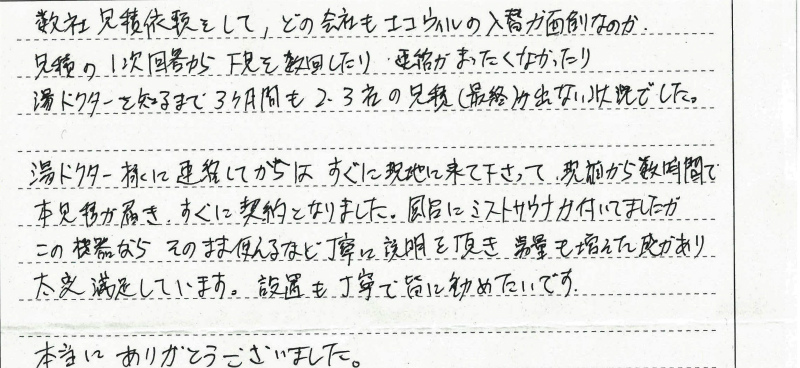 数社見積依頼をして、どの会社もエコウィルの入替が面倒なのか、
見積の1次回答から下見を数回したり 連絡がまったくなかったり
湯ドクターを知るまで3ヶ月間も2.3社の見積(最終)が出ない状況でした。
湯ドクター様に連絡してからは すぐに現地に来て下さって、現調から数時間で
本見積が届き、すぐに契約となりました。風呂にミストサウナが付いてましたが
この機器なら そのまま使えるなど丁寧に説明を頂き 湯量も増えた感があり
大変満足しています。設置も丁寧で皆に勧めたいです。
本当に ありがとうございました。